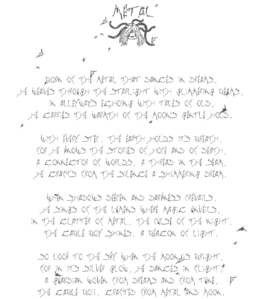 METAL
BORN OF THE METAL THAT DANCES IN DREAMS,
HE WEAVES THROUGH THE STARLIGHT WITH GLIMMERING SEAMS,
IN ALLEYWAYS ECHOING WITH TALES OF OLD,
HE CARRIES THE WRAITH OF THE MOON'S GENTLE HOLD.
WITH EVERY STEP, THE EARTH HOLDS ITS BREATH,
FOR HE KNOWS THE STORIES OF HOPE AND OF DEATH,
A CONNECTOR OF WORLDS, A THREAD IN THE SEAM,
HE CRAFTS FROM THE SILENCE A SHIMMERING DREAM.
WHEN SHADOWS DEEPEN AND DARKNESS PREVAILS,
HE SINGS OF THE WHERE MAGIC
IN THE CLATTER OF METAL, THE PULSE OF THE NIGHT,
THE CABLE BOY SHINES, A BEACON OF LIGHT.
SO LOOK TO THE SKY WHEN THE MOON'S BRIGHT,
FOR IN ITS SILVER GLOW, HE DANCES IN FLIGHT,
A GUARDIAN WOVEN FROM DREAMS AND FROM TUNE,
THE CABLE BOY, CRAFTED FROM METAL AND MOON.